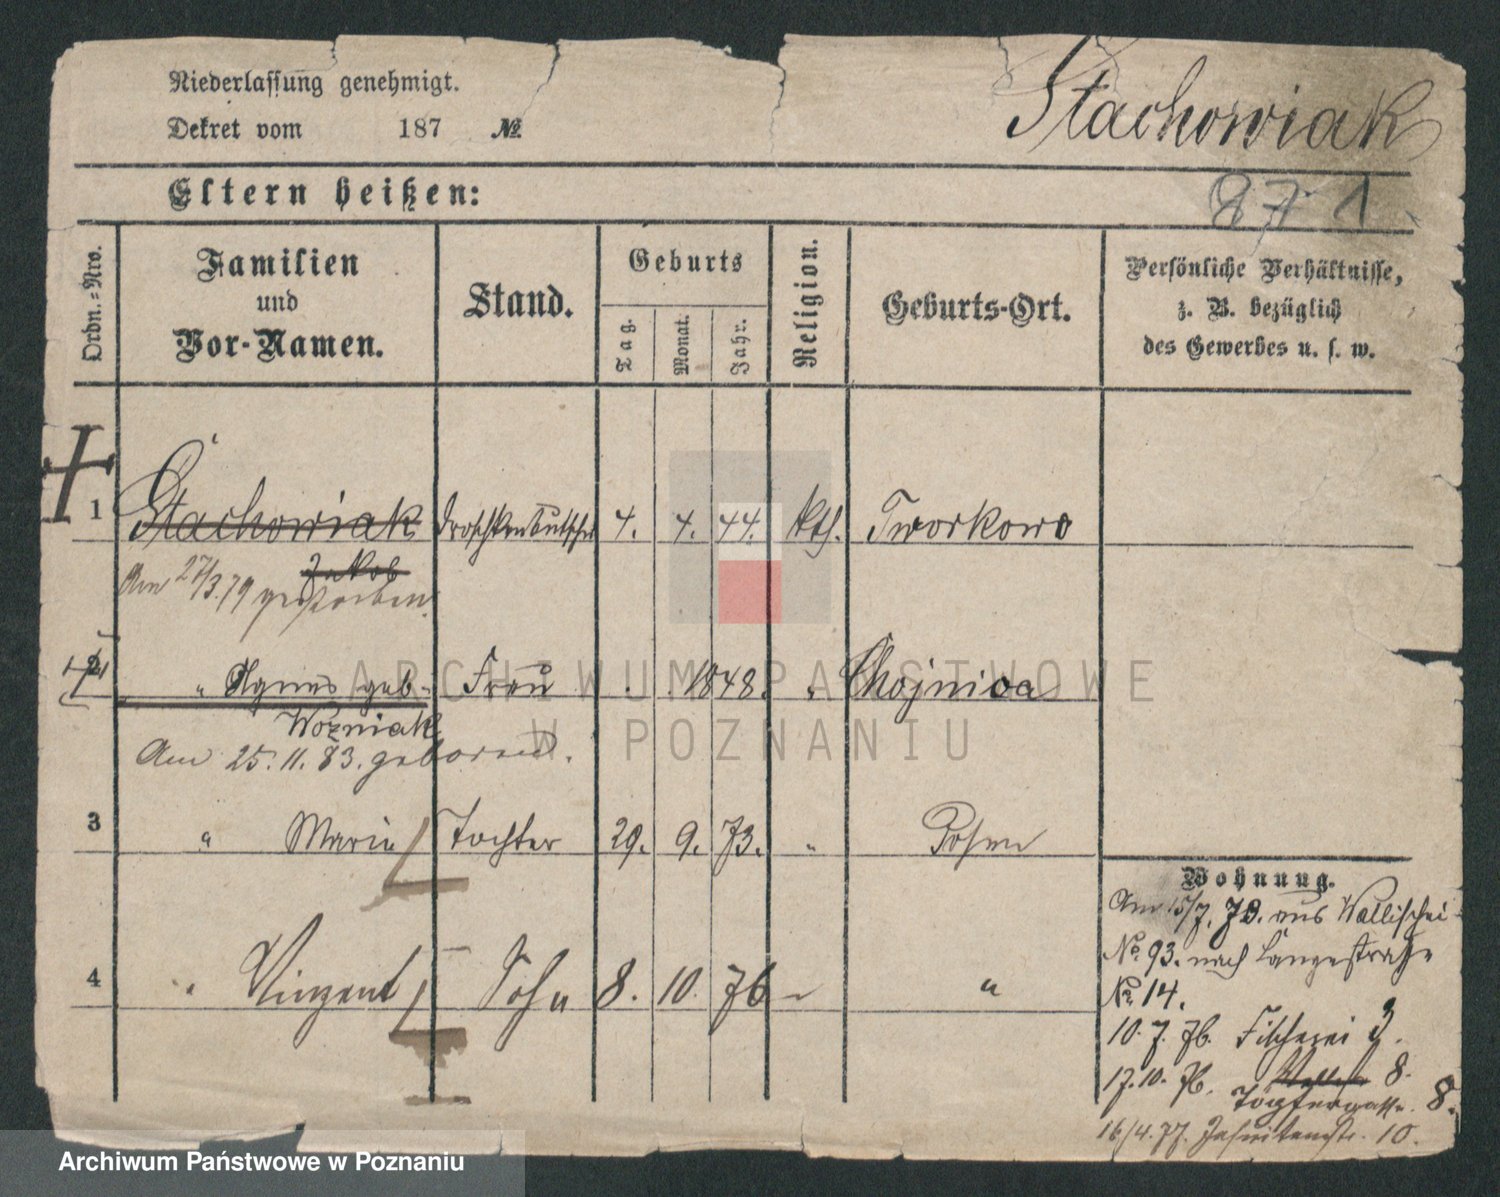 Niederlassung genehmigt.
Dekret vom 187 №
Stachowiak
Eltern heißen:
871
Ordn.=Nro.
Familien
und
Vor-Namen.
Stand.
Geburts
Tag.
Monat.
Jahr.
Religion.
Geburts-Ort.
Persönliche Verhältnisse,
z. B. bezüglich
des Gewerbes u. s. w.
1 Stachowiak Droschkenkutscher 4. 4. 44. kth. Tworkowo
Jakob
Am 27/3.79 gestorben.
2 " Agnes geb. Frau . . 1848. " Chojnica
Wozniak
Am 25.11.83. geboren.
3 " Marie Tochter 29. 9. 73. " Posen
4 " Vinzent Sohn 8. 10. 76 "
Wohnung.
Am 15/7. aus Wallischei
No. 93. nach Langestraße
No 14.
10.7.76. Fischerei 3.
17.10.76. 8.
8.
16/4.77. Jesuitenstr. 10.
ARCHIWUM PAŃSTWOWE
W POZNANIU
Archiwum Państwowe w Poznaniu